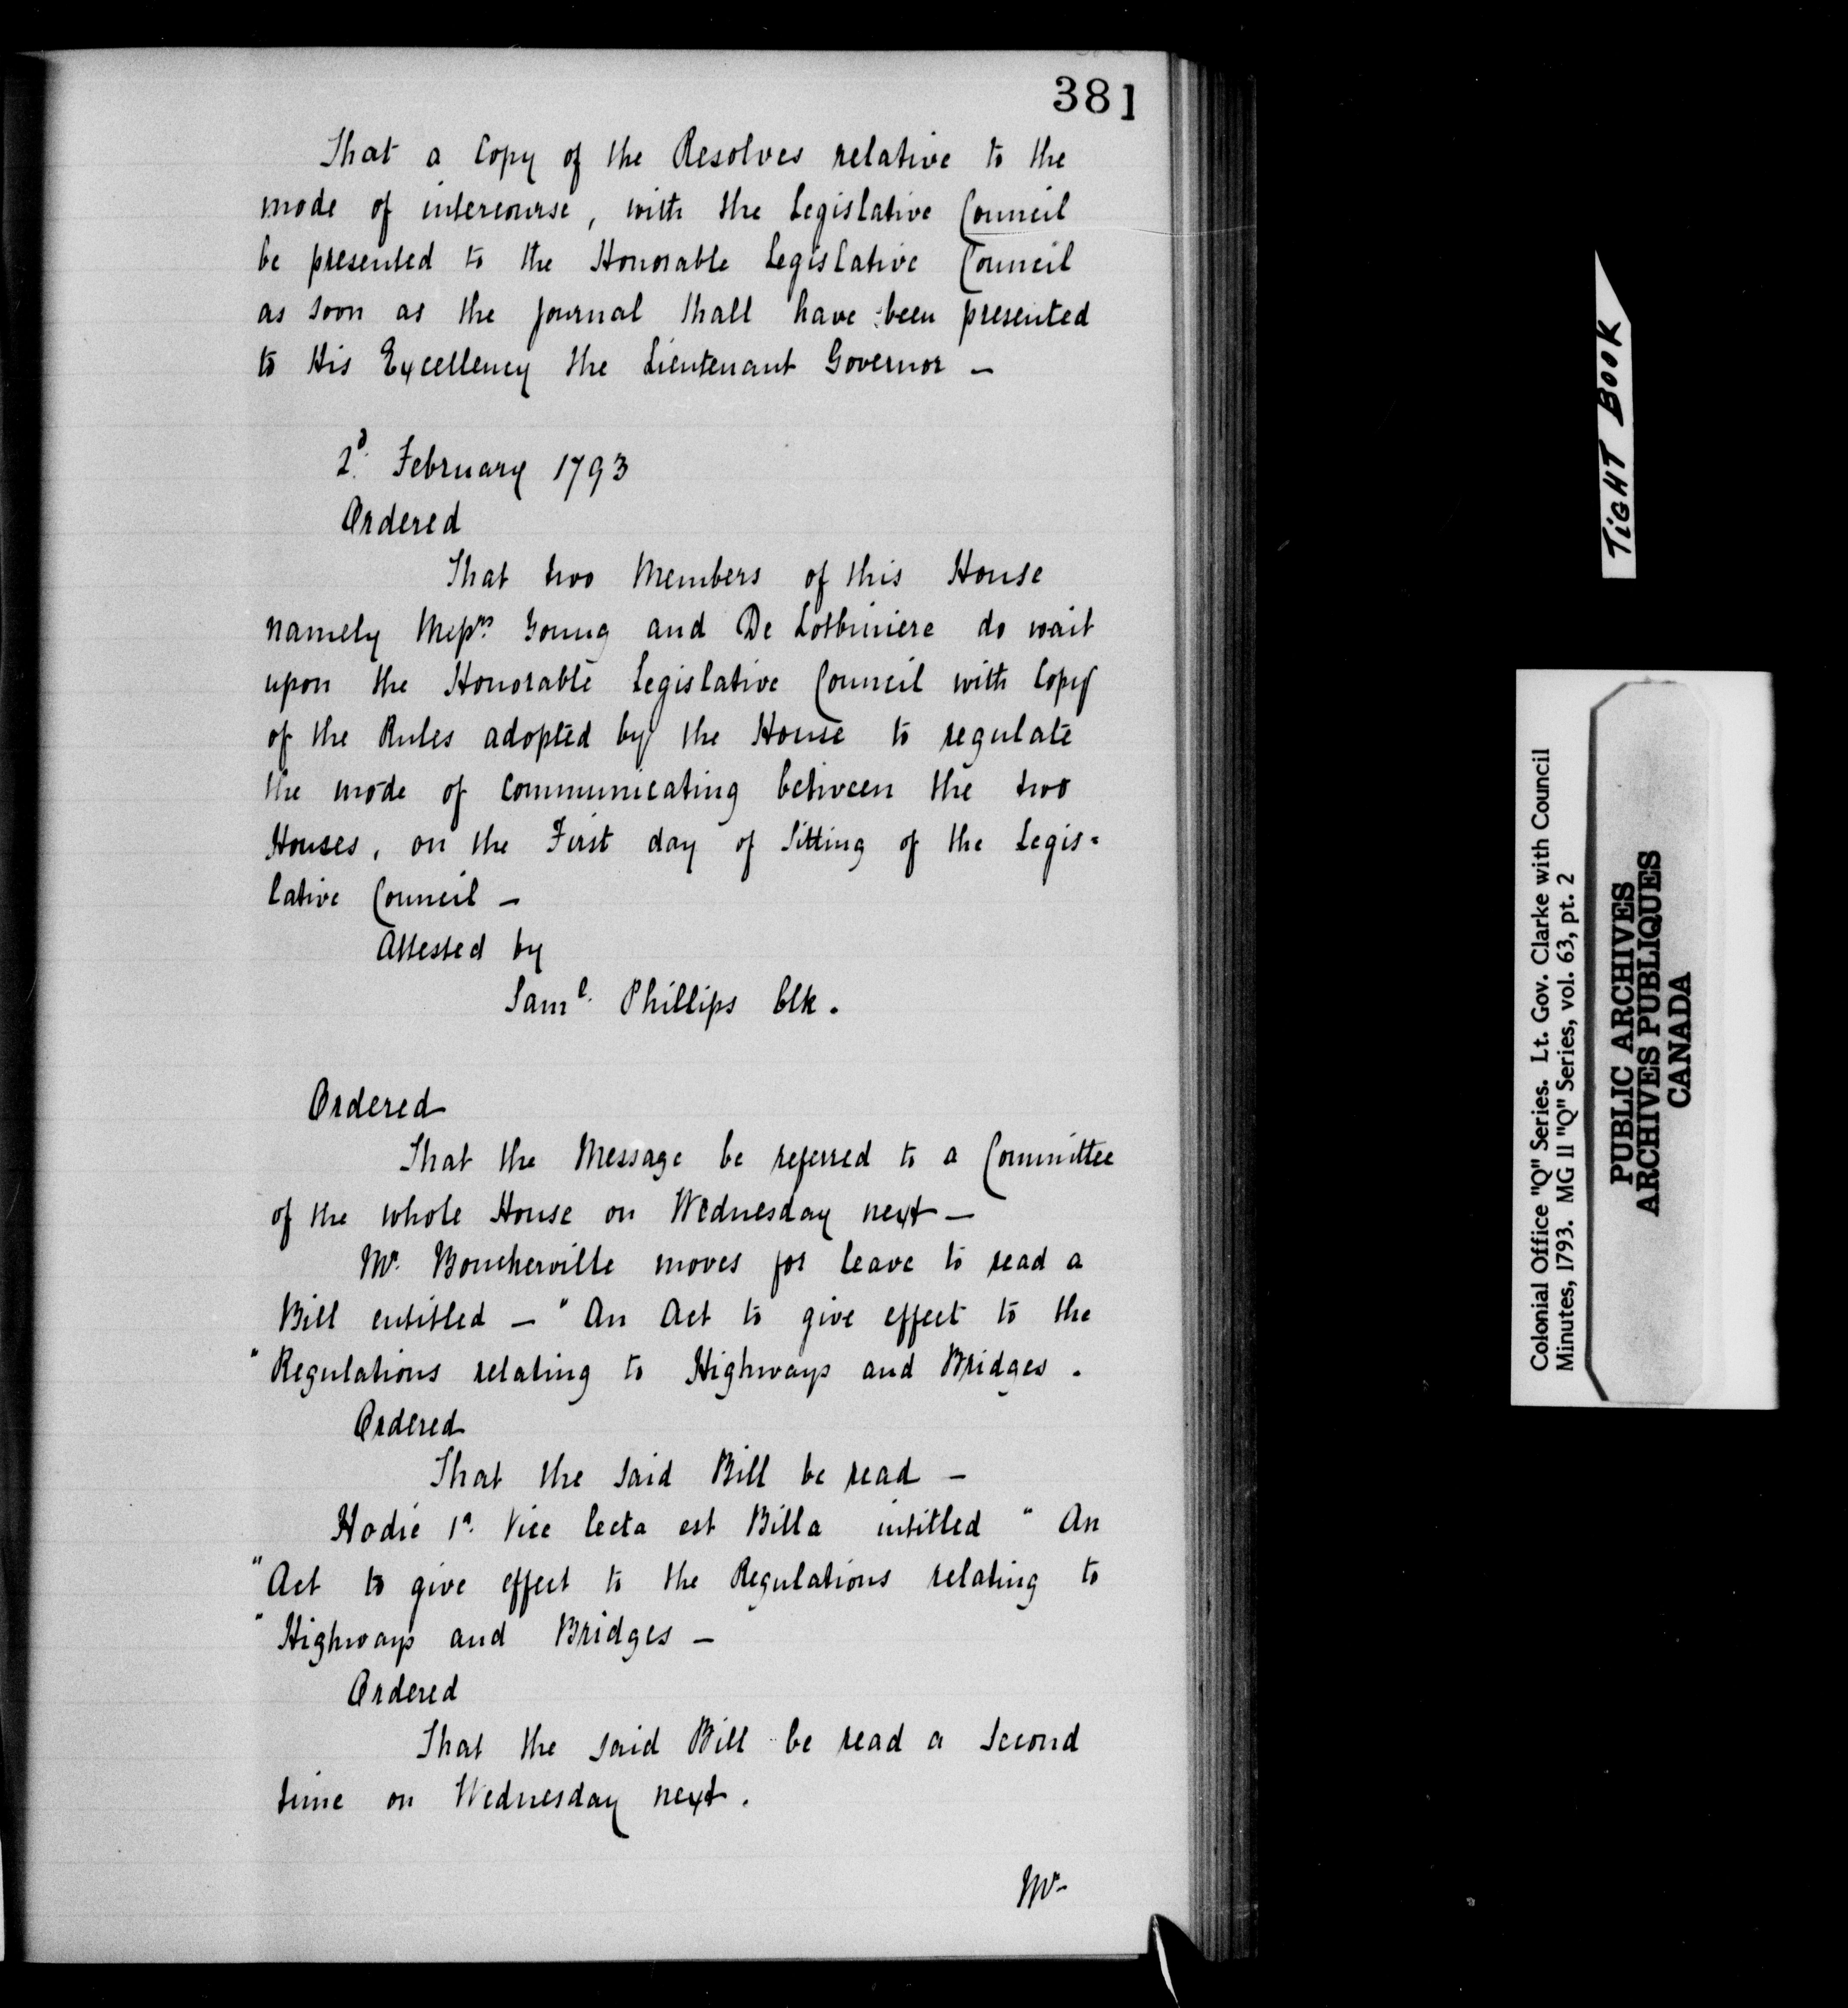 381
That a Copy of the Resolves relative to the
mode of intercourse, with the Legislative Council
be presented to the Honorable Legislative Council
as soon as the Journal shall have been presented
to His Excellency the Lieutenant Governor —
2d. February 1793
Ordered
That two Members of this House
namely Messrs. Young and De Lotbiniere do wait
upon the Honorable Legislative Council with Copy
of the Rules adopted by the House to regulate
the mode of Communicating between the two
Houses, on the First day of Sitting of the Legis=
lative Council —
Attested by
Saml. Phillips Clk.
Ordered
That the Message be referred to a Committee
of the whole House on Wednesday next —
Mr. Boucherville moves for leave to read a
Bill entitled — "An Act to give effect to the
"Regulations relating to Highways and Bridges.
Ordered
That the said Bill be read —
Hodie 1a. Vice lecta est Billa intitled "An
"Act to give effect to the Regulations relating to
"Highways and Bridges —
Ordered
That the said Bill be read a Second
time on Wednesday next.
Mr.
TIGHT BOOK
Colonial Office "Q" Series. Lt. Gov. Clarke with Council
Minutes, 1793. MG 11 "Q" Series, vol. 63, pt. 2
PUBLIC ARCHIVES
ARCHIVES PUBLIQUES
CANADA